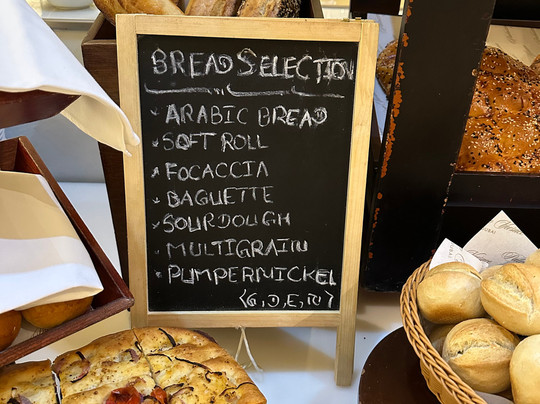 BREAD SELECTION
ARABIC BREAD
SOFT ROLL
FOCACCIA
BAGUETTE
SOURDOUGH
MULTIGRAIN
PUMPERNICKEL
(G, D, E, N)